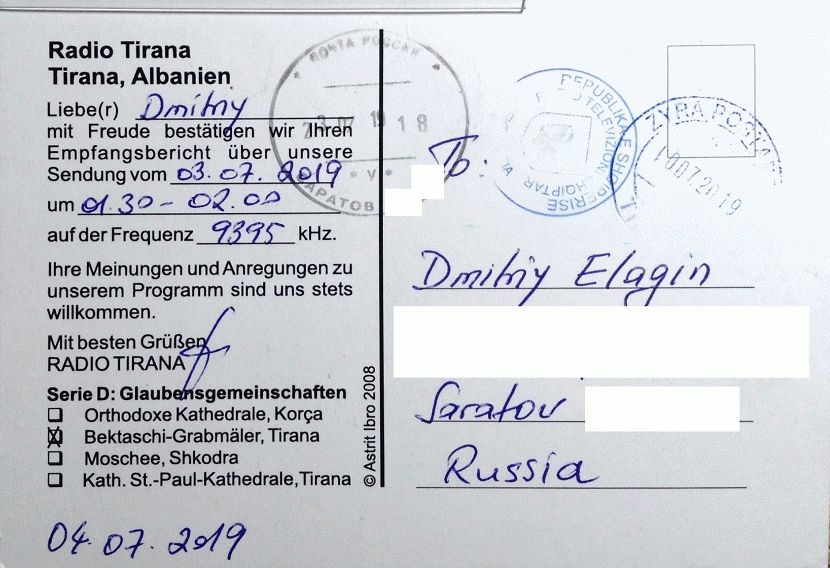 Radio Tirana
Tirana, Albanien
Liebe(r) Dmitriy
mit Freude bestätigen wir Ihren
Empfangsbericht über unsere
Sendung vom 03.07.2019
um 01.30 - 02.00
auf der Frequenz 9395 kHz.
Ihre Meinungen und Anregungen zu
unserem Programm sind uns stets
willkommen.
Mit besten Grüßen
RADIO TIRANA
Serie D: Glaubensgemeinschaften
Orthodoxe Kathedrale, Korça
Bektaschi-Grabmäler, Tirana
Moschee, Shkodra
Kath. St.-Paul-Kathedrale, Tirana
04.07.2019
© Astrit Ibro 2008
ПОЧТА РОССИИ
07 19 18
САРАТОВ
REPUBLIKA E SHQIPERISE
TELEVIZION
SHQIPTAR
ZYRA POSTA
10072019
To:
Dmitriy Elagin
Saratov
Russia